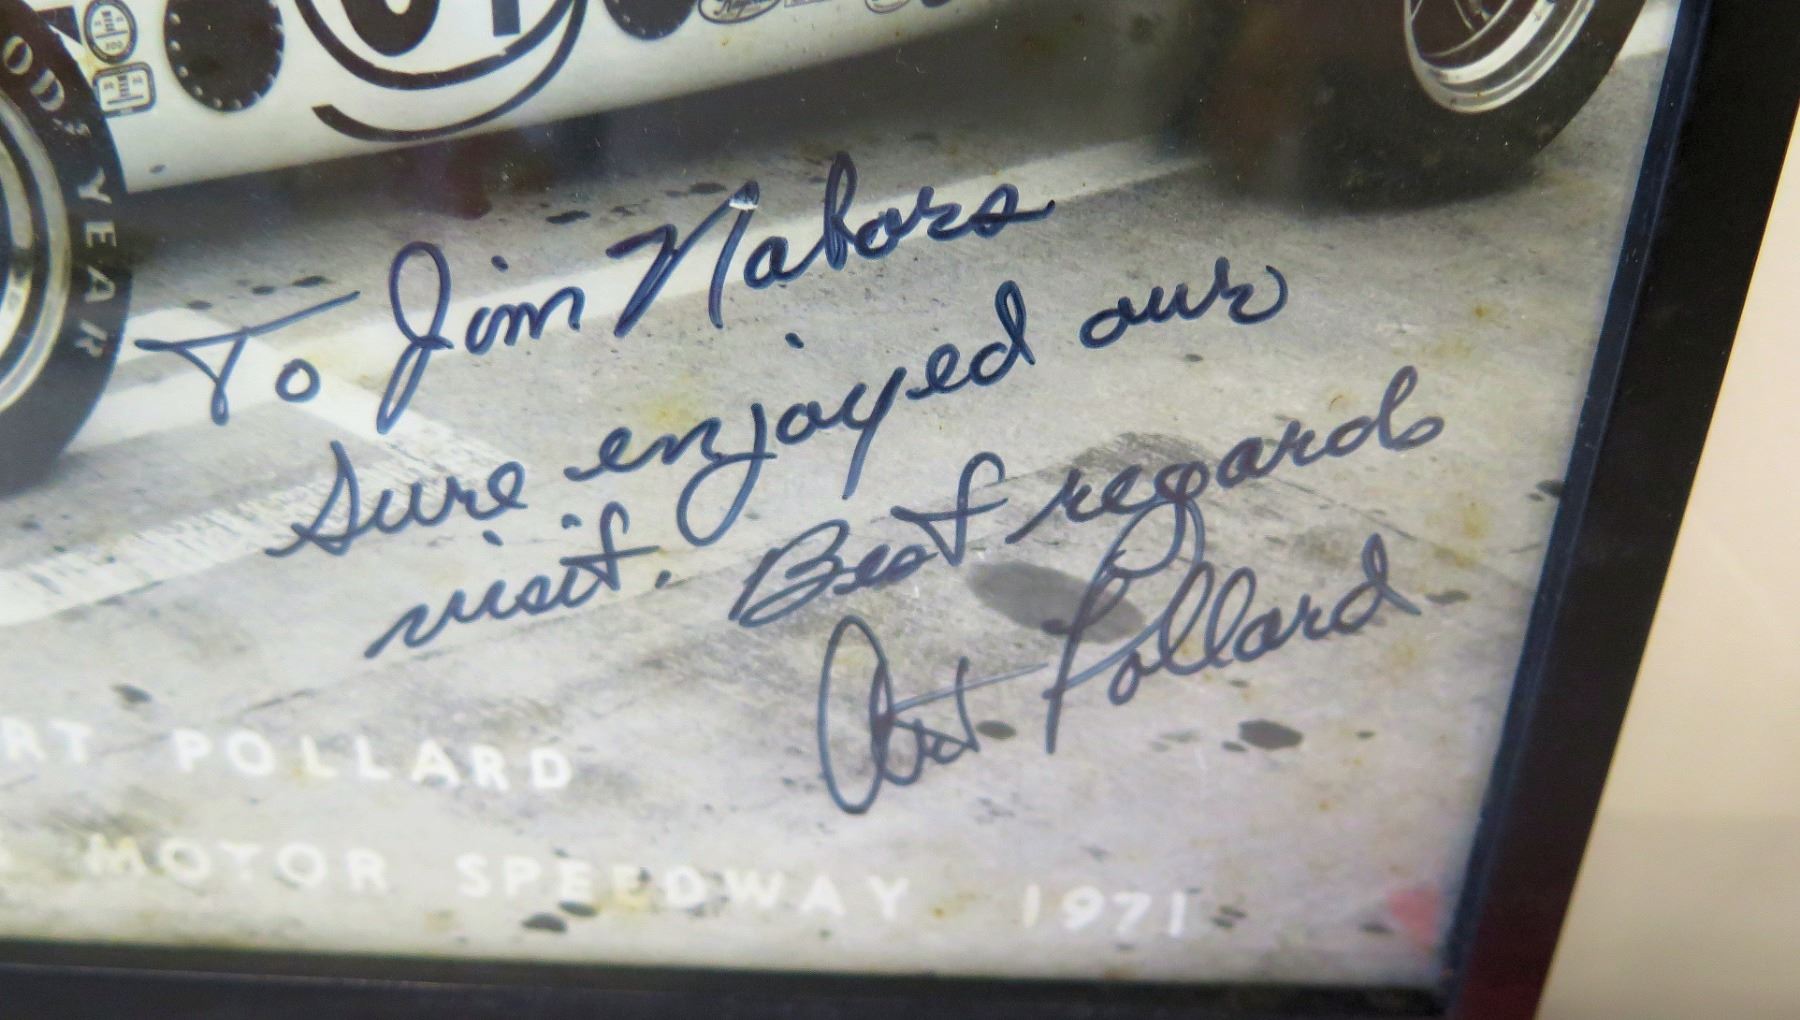 GOODYEAR
To Jim Nabors
Sure enjoyed our
visit. Best regards
Art Pollard
RT POLLARD
MOTOR SPEEDWAY 1971